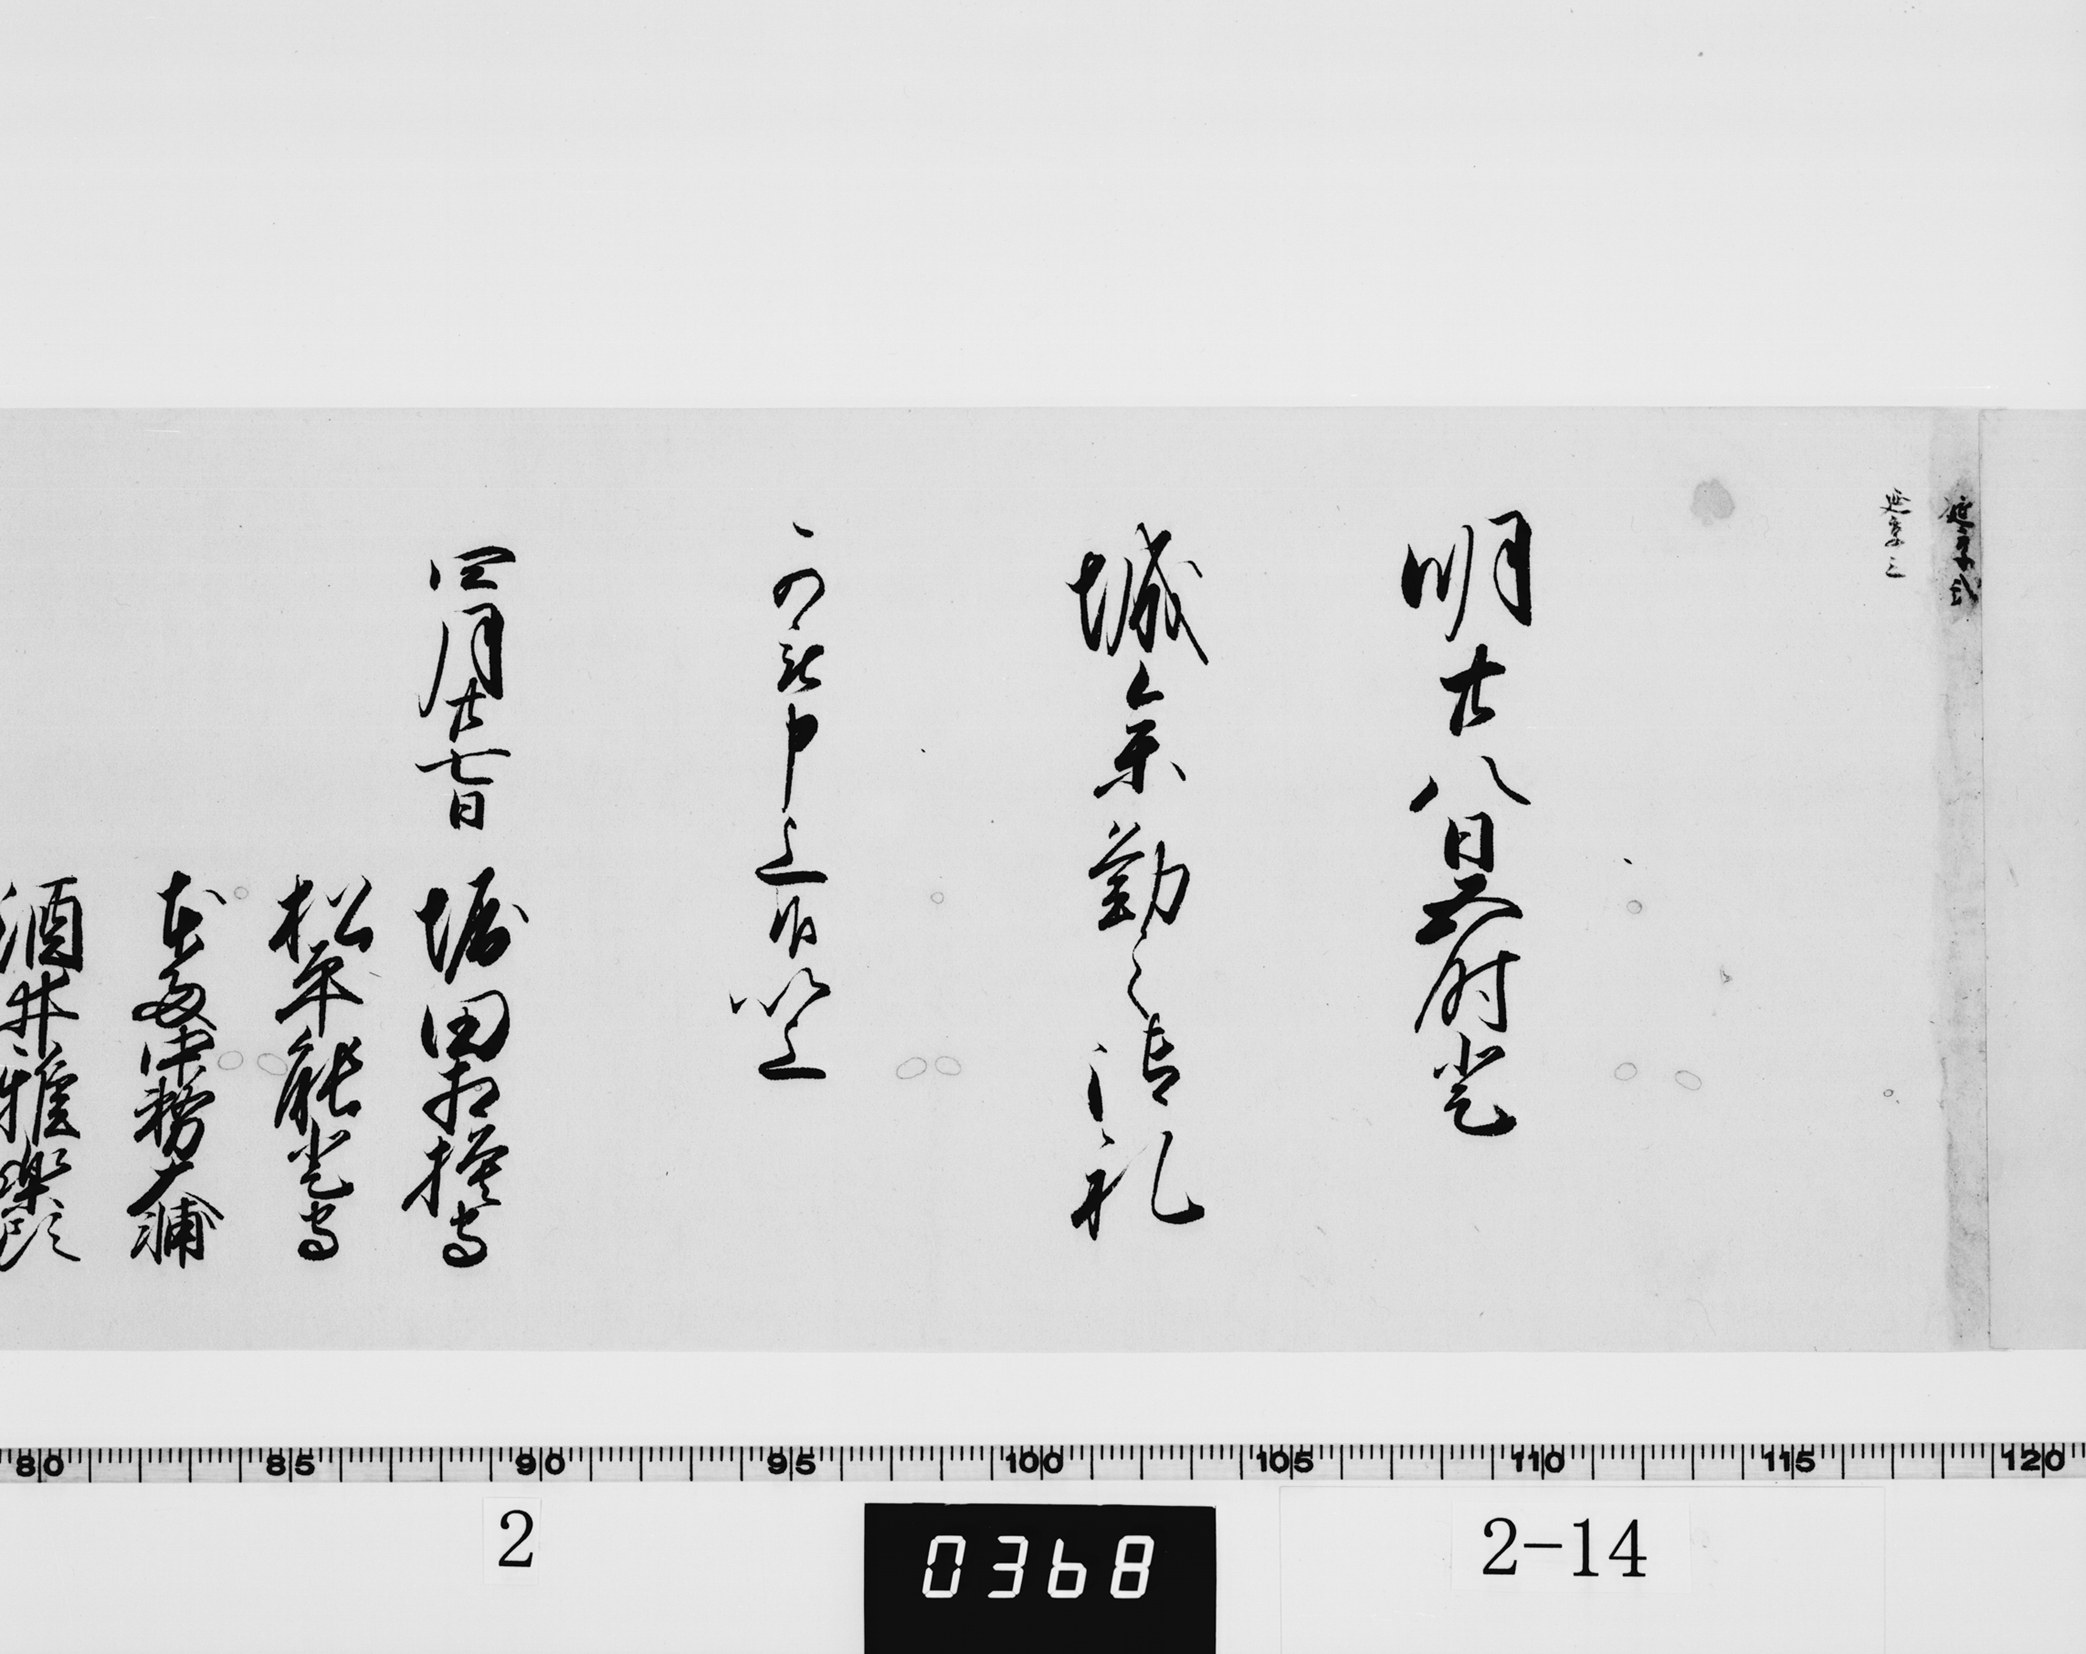 延享弐
延享三
明廿八日五時登
城参勤之御礼
可被申上候以上
四月廿七日 堀田相模守
松平能登守
本多中務大輔
酒井雅楽頭
80 85 90 95 100 105 110 115 120
2
0368
2-14